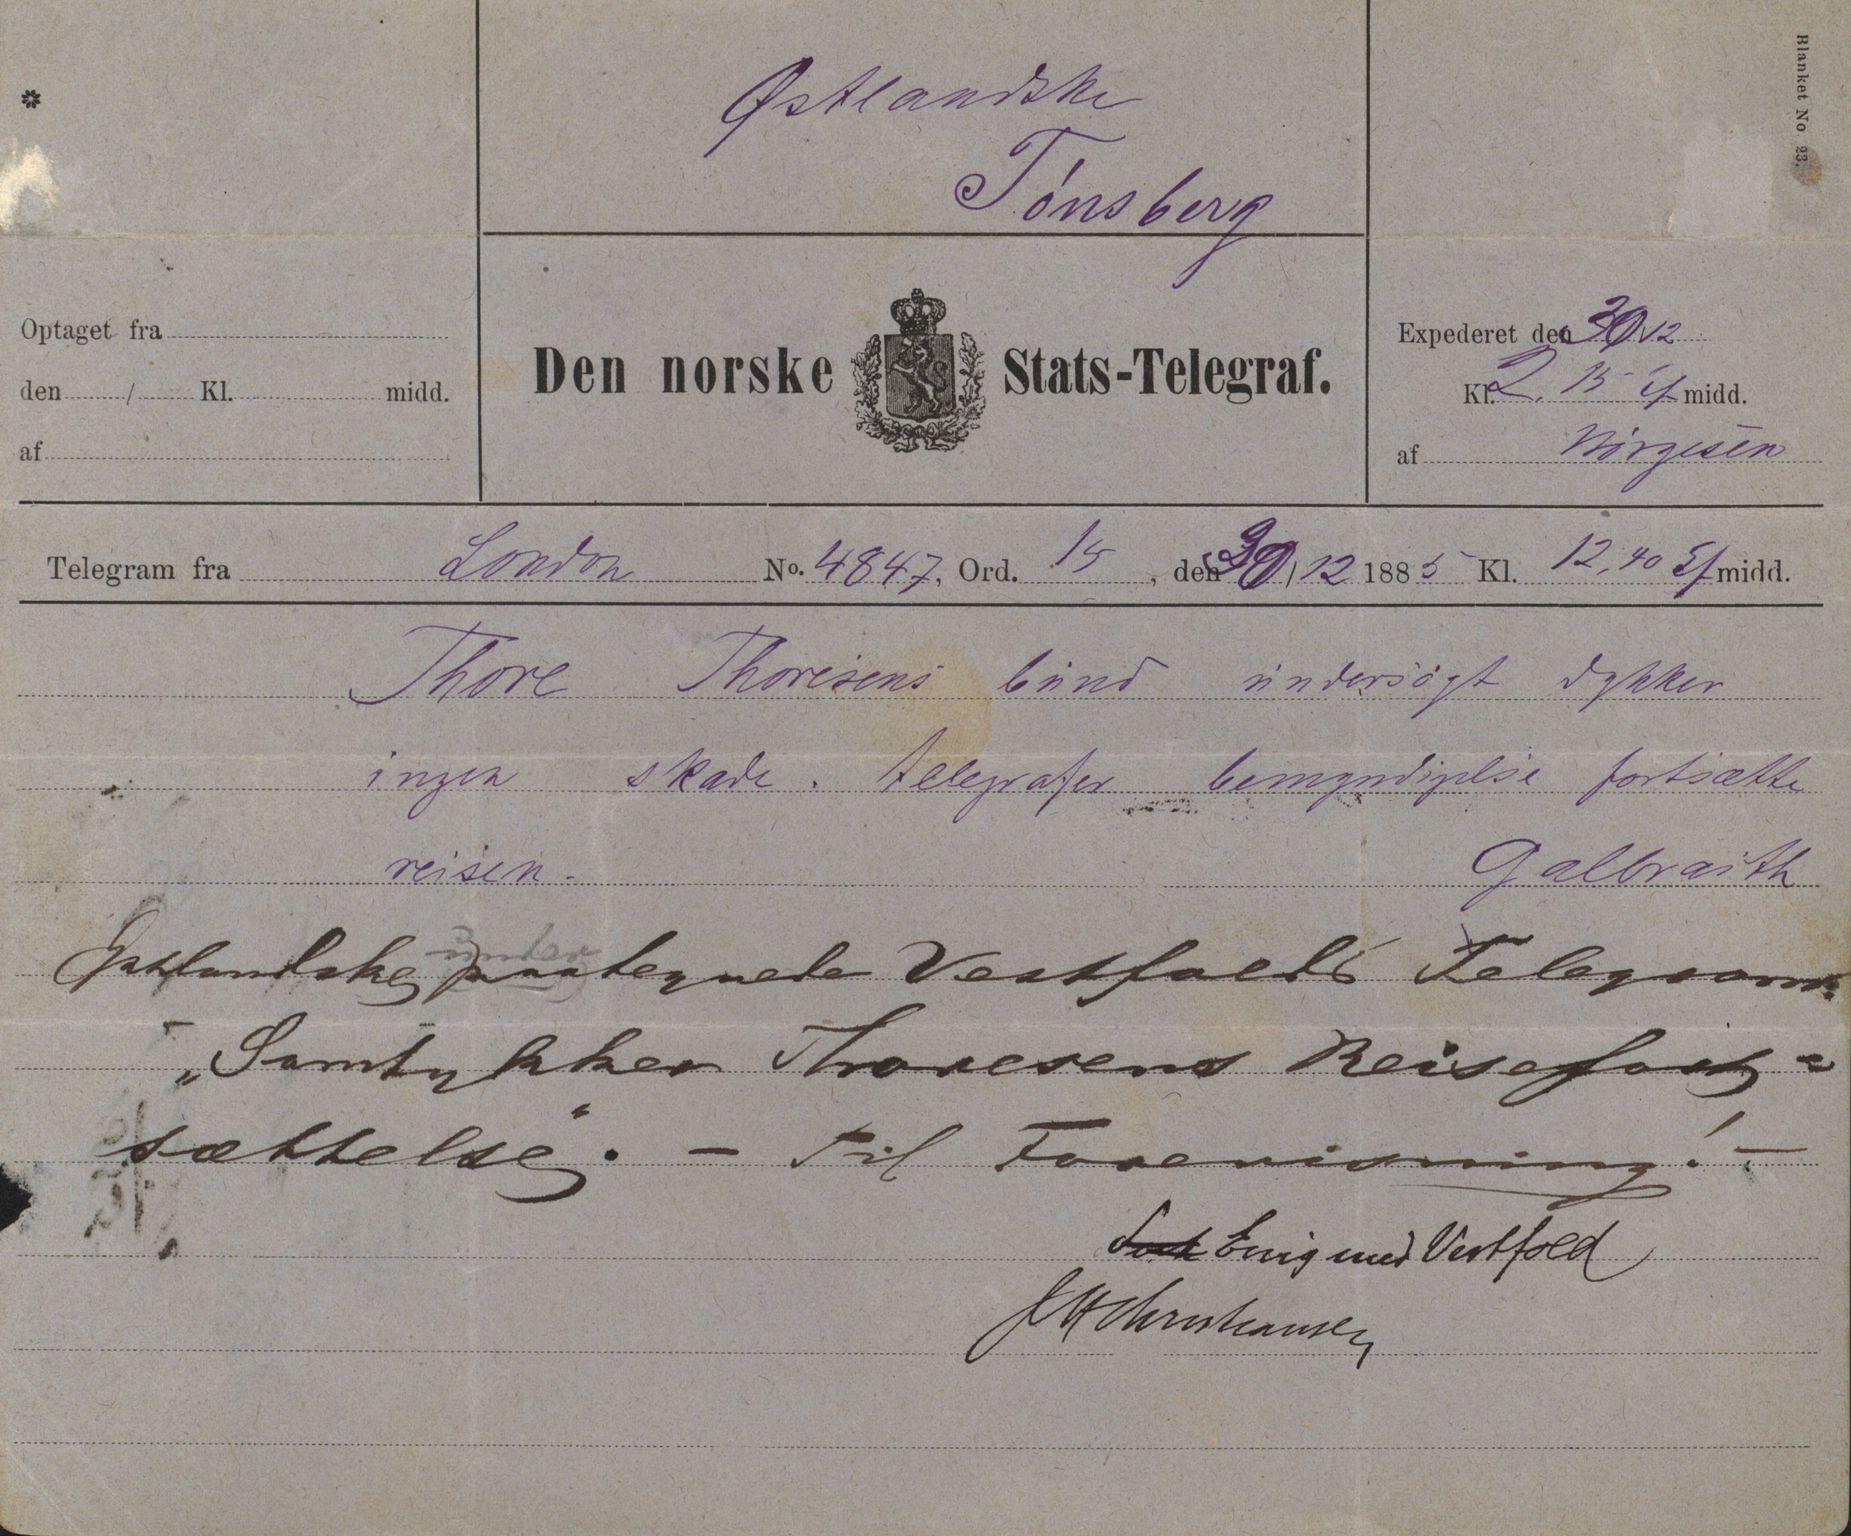 Blanket No. 23.
Østlandske
Tönsberg
Optaget fra
den / Kl. midd.
af
Den norske Stats-Telegraf.
Expederet den 30/12
Kl. 2.15 Ef midd.
af Börgesen
Telegram fra London No. 4847, Ord. 15, den 30/12 1885 Kl. 12,40 Ef midd.
Thore Thoresens bund undersögt dykker
ingen skade. telegrafer bemyndigelse fortsætte
reisen.
Galbraith
under
Østlandske paategnede Vestfolds Telegram:
„Samtykker Thoresens Reisefort=
sættelse". – Til Forevisning! –
Enig med Vestfold